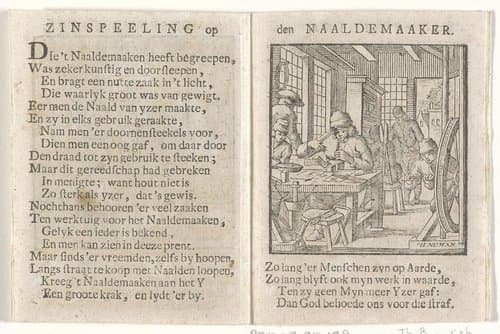 ZINSPEELING op
Die 't Naaldemaaken heeft begreepen,
Was zeker kunstig en doorsleepen,
En bragt een nutte zaak in 't licht,
Die waarlyk groot was van gewigt.
Eer men de Naald van yzer maakte,
En zy in elks gebruik geraakte,
Nam men 'er doornensteekels voor,
Dien men een oog gaf, om daar door
Den draad tot zyn gebruik te steeken;
Maar dit gereedschap had gebreken
In menigte; want hout niet is
Zo sterk als yzer, dat 's gewis.
Nochthans behooren 'er veel zaaken
Ten werktuig voor het Naaldemaaken,
Gelyk een ieder is bekend,
En men kan zien in deze prent.
Maar sinds 'er vreemden, zelfs by hoopen,
Langs straat te koop met Naalden loopen,
Kreeg 't Naaldemaaken aan het Y
Een groote krak, en lydt 'er by.
den NAALDEMAAKER.
Zo lang 'er Menschen zyn op Aarde,
Zo lang blyft ook myn werk in waarde,
Ten zy geen Myn meer Yzer gaf:
Dan God behoede ons voor die straf.